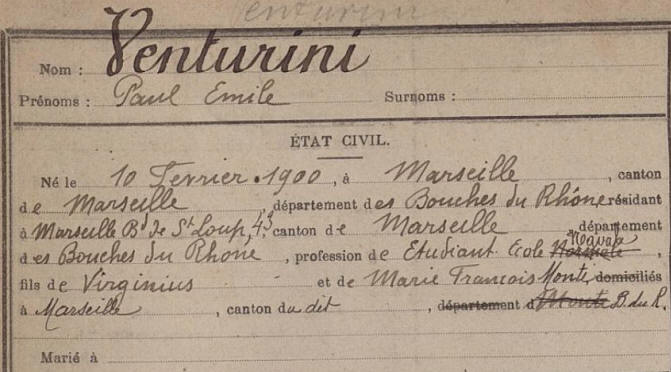 Venturini
Nom : Venturini
Prénoms : Paul Emile Surnoms :
ÉTAT CIVIL.
Né le 10 Fevrier 1900, à Marseille, canton
de Marseille, département des Bouches du Rhône résidant
à Marseille Bd de St Loup, 43, canton de Marseille département
des Bouches du Rhône, profession de Etudiant Ecole Normale Navale,
fils de Virginius et de Marie Francois Monte domiciliés
à Marseille, canton du dit, département d Monte B. du R.
Marié à